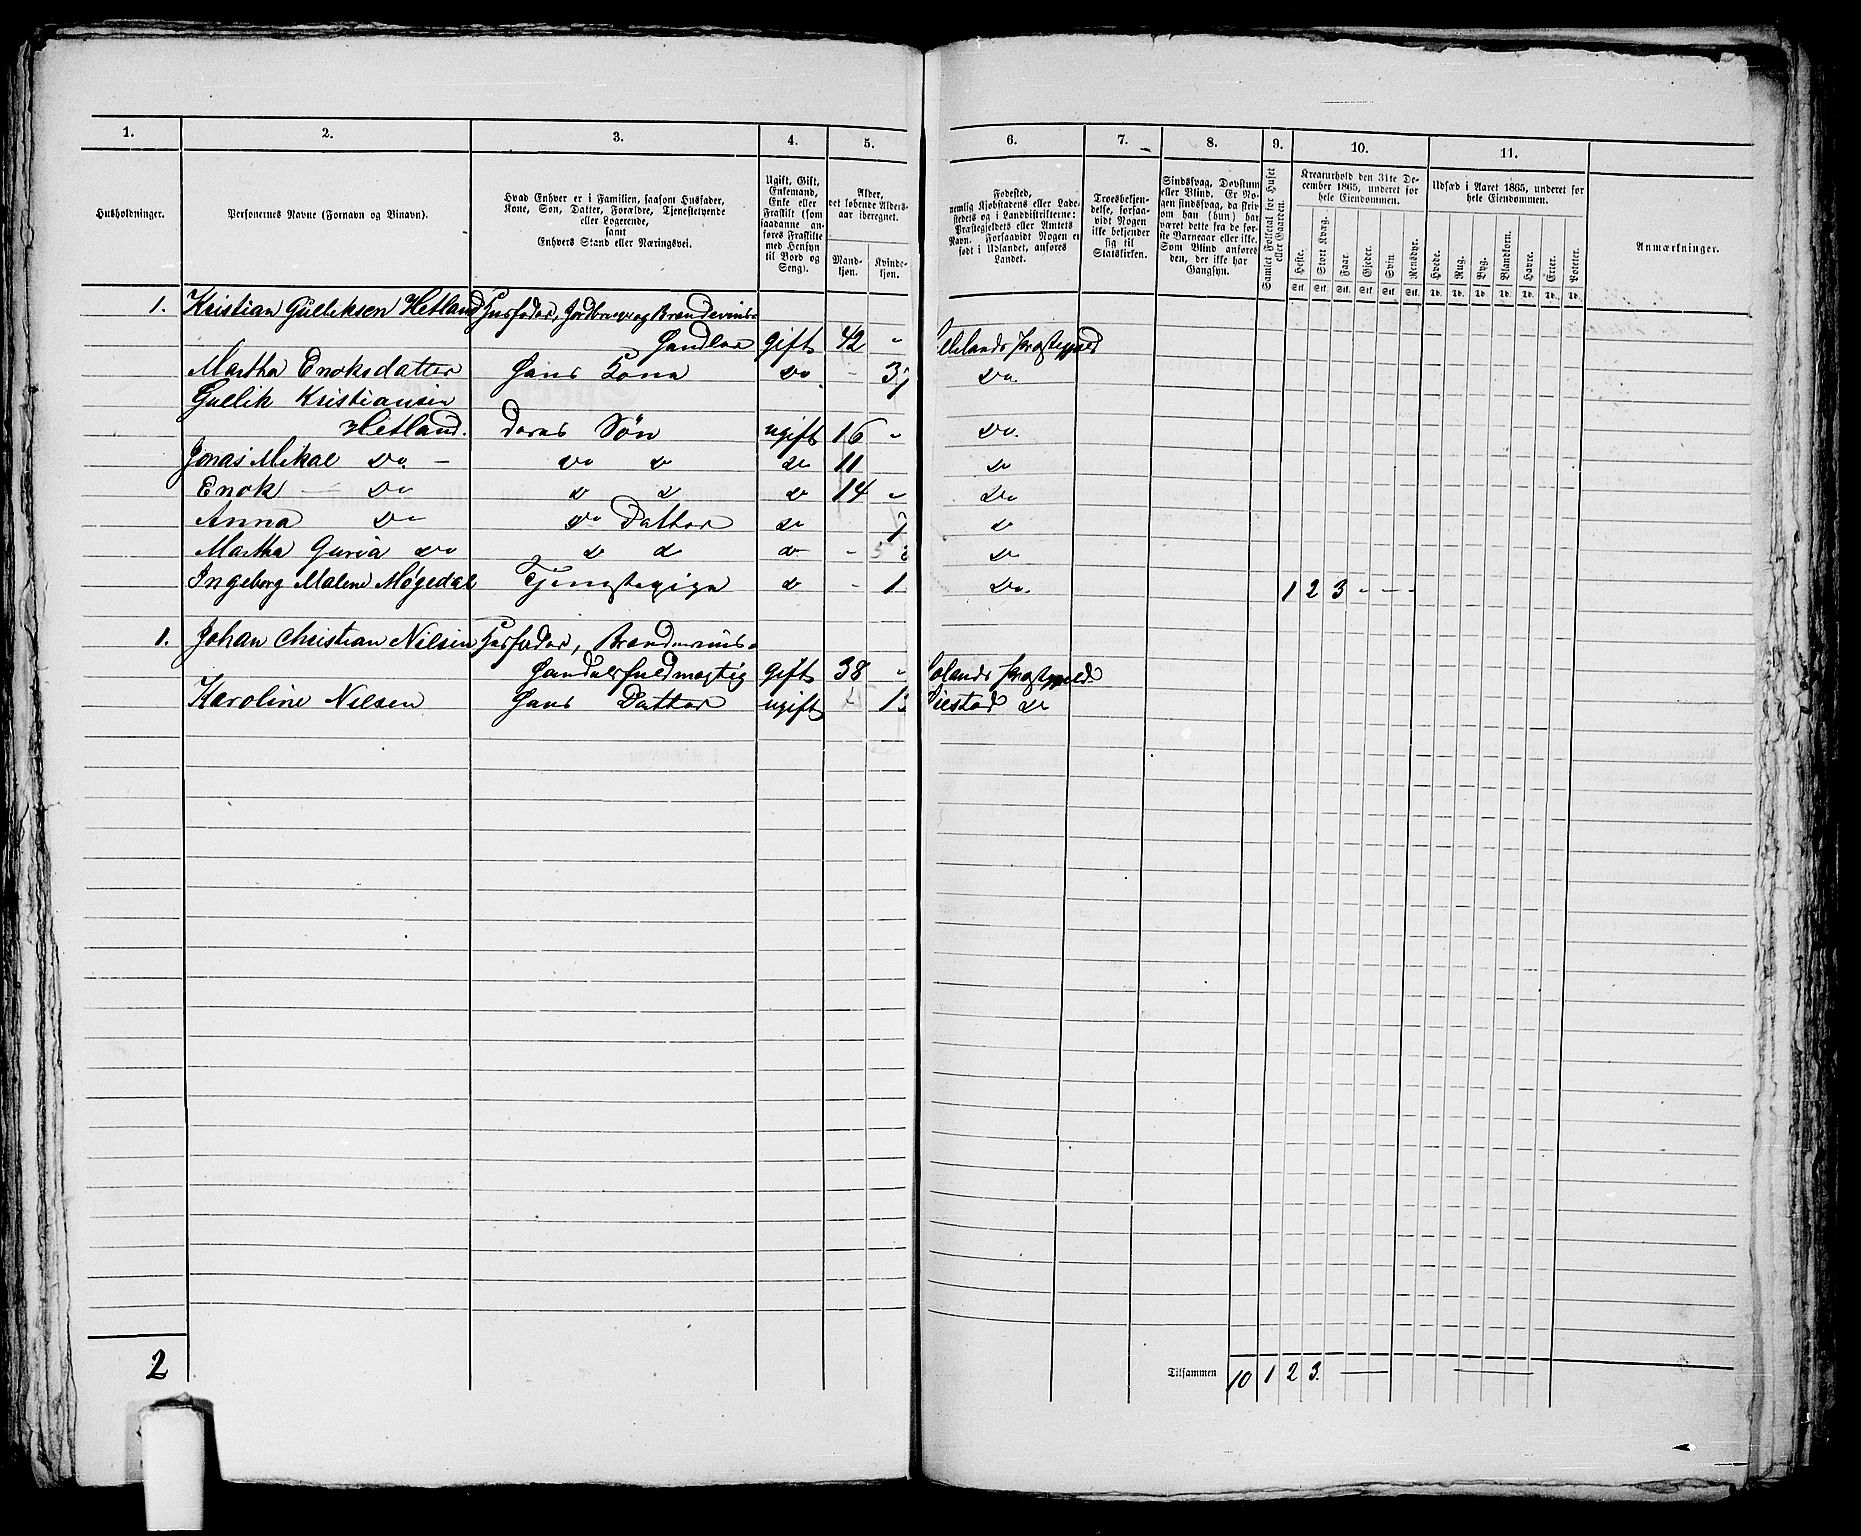 1. 2. 3. 4. 5. 6. 7. 8. 9. 10. 11.
Husholdninger.
Personernes Navne (Fornavn og Binavn).
Hvad Enhver er i Familien, saasom Husfader,
Kone, Søn, Datter, Forældre, Tjenestetyende
eller Logerende,
samt
Enhvers Stand eller Næringsvei.
Ugift, Gift,
Enkemand,
Enke eller
Fraskilt (som
saadanne an-
føres Fraskilte
med Hensyn
til Bord og
Seng).
Alder,
det løbende Alders-
aar iberegnet.
Mand-
kjøn.
Kvinde-
kjøn.
Fødested,
nemlig Kjøbstadens eller Lade-
stedets og i Landdistrikterne:
Præstegjeldets eller Amtets
Navn. Forsaavidt Nogen er
født i Udlandet, anføres
Landet.
Troesbekjen-
delse, forsaa-
vidt Nogen
ikke bekjender
sig til
Statskirken.
Sindssvag, Døvstum
eller Blind. Er No-
gen sindssvag, da skriv
om han (hun) har
været dette fra de før-
ste Barneaar eller ikke.
Som Blind anføres
den, der ikke har
Gangsyn.
Samlet Folketal for Huset
eller Gaarden.
Kreaturhold den 31te De-
cember 1865, underet for
hele Eiendommen.
Heste. Stort Kvæg. Faar. Gjeder. Svin. Rensdyr.
Stk. Stk. Stk. Stk. Stk. Stk.
Udsæd i Aaret 1865, underet for
hele Eiendommen.
Hvede. Rug. Byg. Blandkorn. Havre. Erter. Poteter.
Td. Td. Td. Td. Td. Td. Td.
Anmærkninger.
1. Kristian Gulliksen Hetland Husfader, Jordbruger og Brændevins-
Handler gift 42 " Præstegjeld
Martha Enoksdatter Hans Kona Do - Do.
Gullik Kristiansen
Hetland. Deres Søn ugift 16 " Do.
Jonas Mikal Do - Do d do 11 do
Enok - Do d d d 14 " Do
Anna Do Do Datter do d
Martha Do d d d - do
Ingeborg Malene Møgedal Tjenestepige d - 1 Do. 1 2 3 - - -
1. Johan Christian Nielsen Husfader, Brændevins-
Handelsfuldmægtig gift 38 " Præstegjeld
Karoline Nilsen Hans Datter ugift do
2
Tilsammen 10 1 2 3.